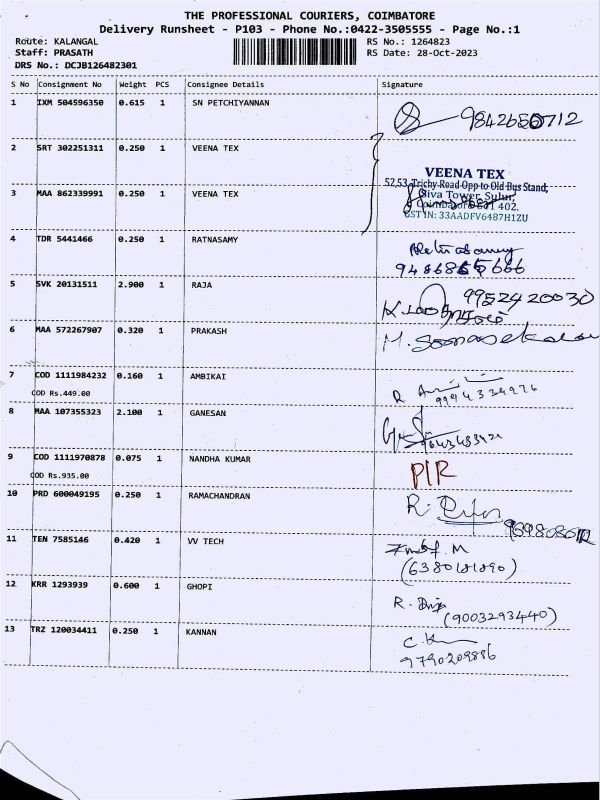 THE PROFESSIONAL COURIERS, COIMBATORE
Delivery Runsheet - P103 - Phone No.:0422-3505555 - Page No.:1
Route: KALANGAL RS No.: 1264823
Staff: PRASATH RS Date: 28-Oct-2023
DRS No.: DCJB126482301
S No Consignment No Weight PCS Consignee Details Signature
1 IXM 504596350 0.615 1 SN PETCHIYANNAN
2 SRT 302251311 0.250 1 VEENA TEX
VEENA TEX
52,53, Trichy Road Opp to Old Bus Stand,
3 MAA 862339991 0.250 1 VEENA TEX
Siva Tower, Sulur,
Coimbatore 641 402.
GST IN: 33AADFV6487H1ZU
4 TDR 5441466 0.250 1 RATNASAMY
5 SVK 20131511 2.900 1 RAJA
9952420030
6 MAA 572267907 0.320 1 PRAKASH
7 COD 1111984232 0.160 1 AMBIKAI
COD Rs.449.00
8 MAA 107355323 2.100 1 GANESAN
9 COD 1111970878 0.075 1 NANDHA KUMAR
COD Rs.935.00
PIR
10 PRD 600049195 0.250 1 RAMACHANDRAN
R.
11 TEN 7585146 0.420 1 VV TECH
(6380181890)
12 KRR 1293939 0.600 1 GHOPI
R.
(9003293440)
13 TRZ 120034411 0.250 1 KANNAN
C.
9790209886